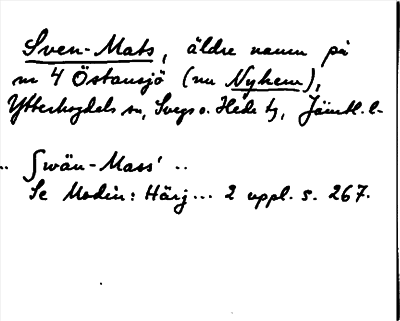 Sven-Mats, äldre namn på
nr 4 Östansjö (nu Nyhem),
Ytterhogdals sn, Svegs o. Hede tg, Jämtl. l.
.. ʃwän-Mass' ..
Se Modin: Härj... 2 uppl. s. 267.